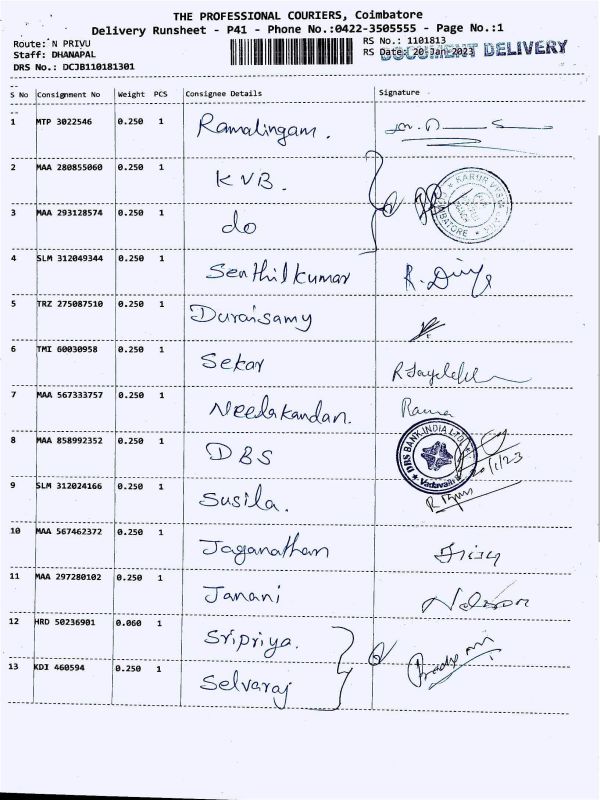 THE PROFESSIONAL COURIERS, Coimbatore
Delivery Runsheet - P41 - Phone No.:0422-3505555 - Page No.:1
Route: N PRIVU
Staff: DHANAPAL
DRS No.: DCJB110181301
RS No.: 1101813
RS Date: 20-Jan-2023
DOCUMENT DELIVERY
S No Consignment No Weight PCS Consignee Details Signature
1 MTP 3022546 0.250 1 Ramalingam.
2 MAA 280855060 0.250 1 KVB.
KARUR VYSYA
COIMBATORE
3 MAA 293128574 0.250 1 do
4 SLM 312049344 0.250 1 Senthilkumar R. Divya
5 TRZ 275087510 0.250 1 Duraisamy
6 TMI 60030958 0.250 1 Sekar
7 MAA 567333757 0.250 1 Neelakandan. Rama
8 MAA 858992352 0.250 1 DBS
DBS BANK INDIA LTD
Vadavalli
9 SLM 312024166 0.250 1 Susila.
10 MAA 567462372 0.250 1 Jaganathan
11 MAA 297280102 0.250 1 Janani
12 HRD 50236901 0.060 1 Sripriya.
13 KDI 460594 0.250 1 Selvaraj